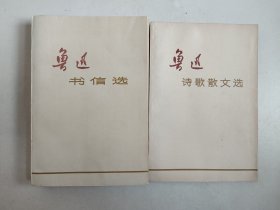 鲁迅
书信选
鲁迅
诗歌散文选